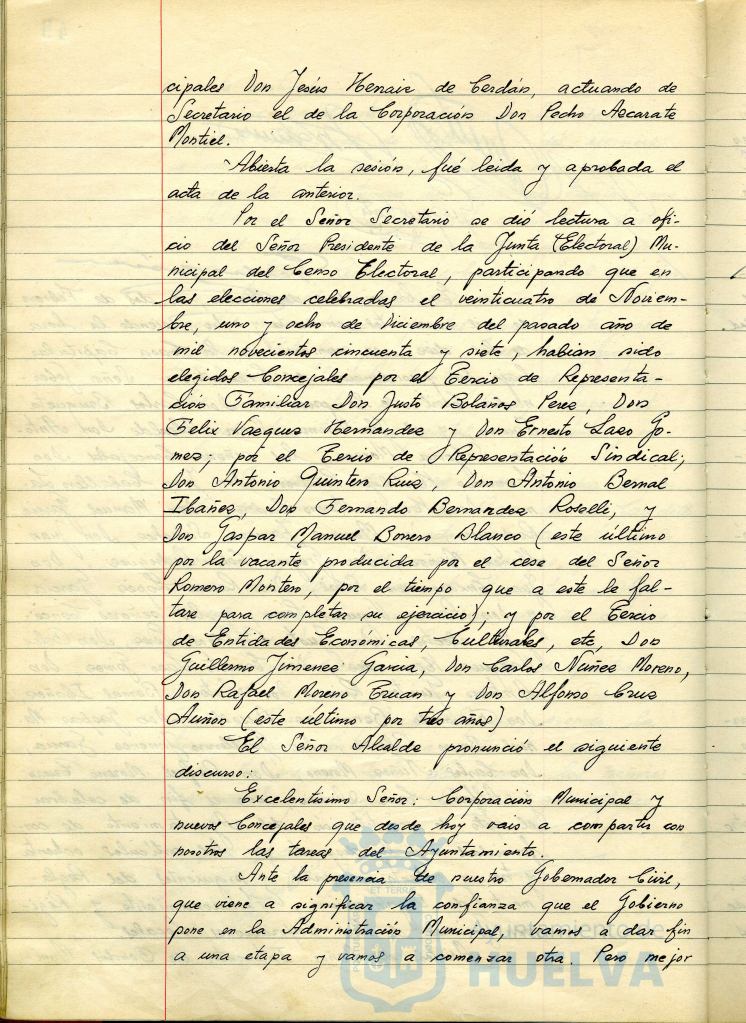 cipales Don Jesús Henaiz de Cerdán, actuando de
Secretario el de la Corporación Don Pedro Azcarate
Montiel.
Abierta la sesión, fué leida y aprobada el
acta de la anterior.
Por el Señor Secretario se dió lectura a ofi-
cio del Señor Presidente de la Junta (Electoral) Mu-
nicipal del Censo Electoral, participando que en
las elecciones celebradas el veinticuatro de Noviem-
bre, uno y ocho de Diciembre del pasado año de
mil novecientos cincuenta y siete, habian sido
elegidos Concejales por el Tercio de Representa-
ción Familiar Don Justo Bolaños Perez, Don
Felix Vazquez Hernandez y Don Ernesto Lazo Go-
mez; por el Tercio de Representación Sindical;
Don Antonio Quintero Ruiz, Don Antonio Bernal
Ibañez, Don Fernando Bernandez Roselli, y
Don Gaspar Manuel Borrero Blanco (este último
por la vacante producida por el cese del Señor
Romero Montero, por el tiempo que a este le fal-
tare para completar su ejercicio); y por el Tercio
de Entidades Económicas, Culturales, etc, Don
Guillermo Jimenez Garcia, Don Carlos Núñez Moreno,
Don Rafael Moreno Truan y Don Alfonso Cruz
Auñon (este último por tres años)
El Señor Alcalde pronunció el siguiente
discurso:
Excelentísimo Señor: Corporación Municipal y
nuevos Concejales que desde hoy vais a compartir con
nosotros las tareas del Ayuntamiento.
Ante la presencia de nuestro Gobernador Civil,
que viene a significar la confianza que el Gobierno
pone en la Administración Municipal, vamos a dar fin
a una etapa y vamos a comenzar otra. Pero mejor
HUELVA